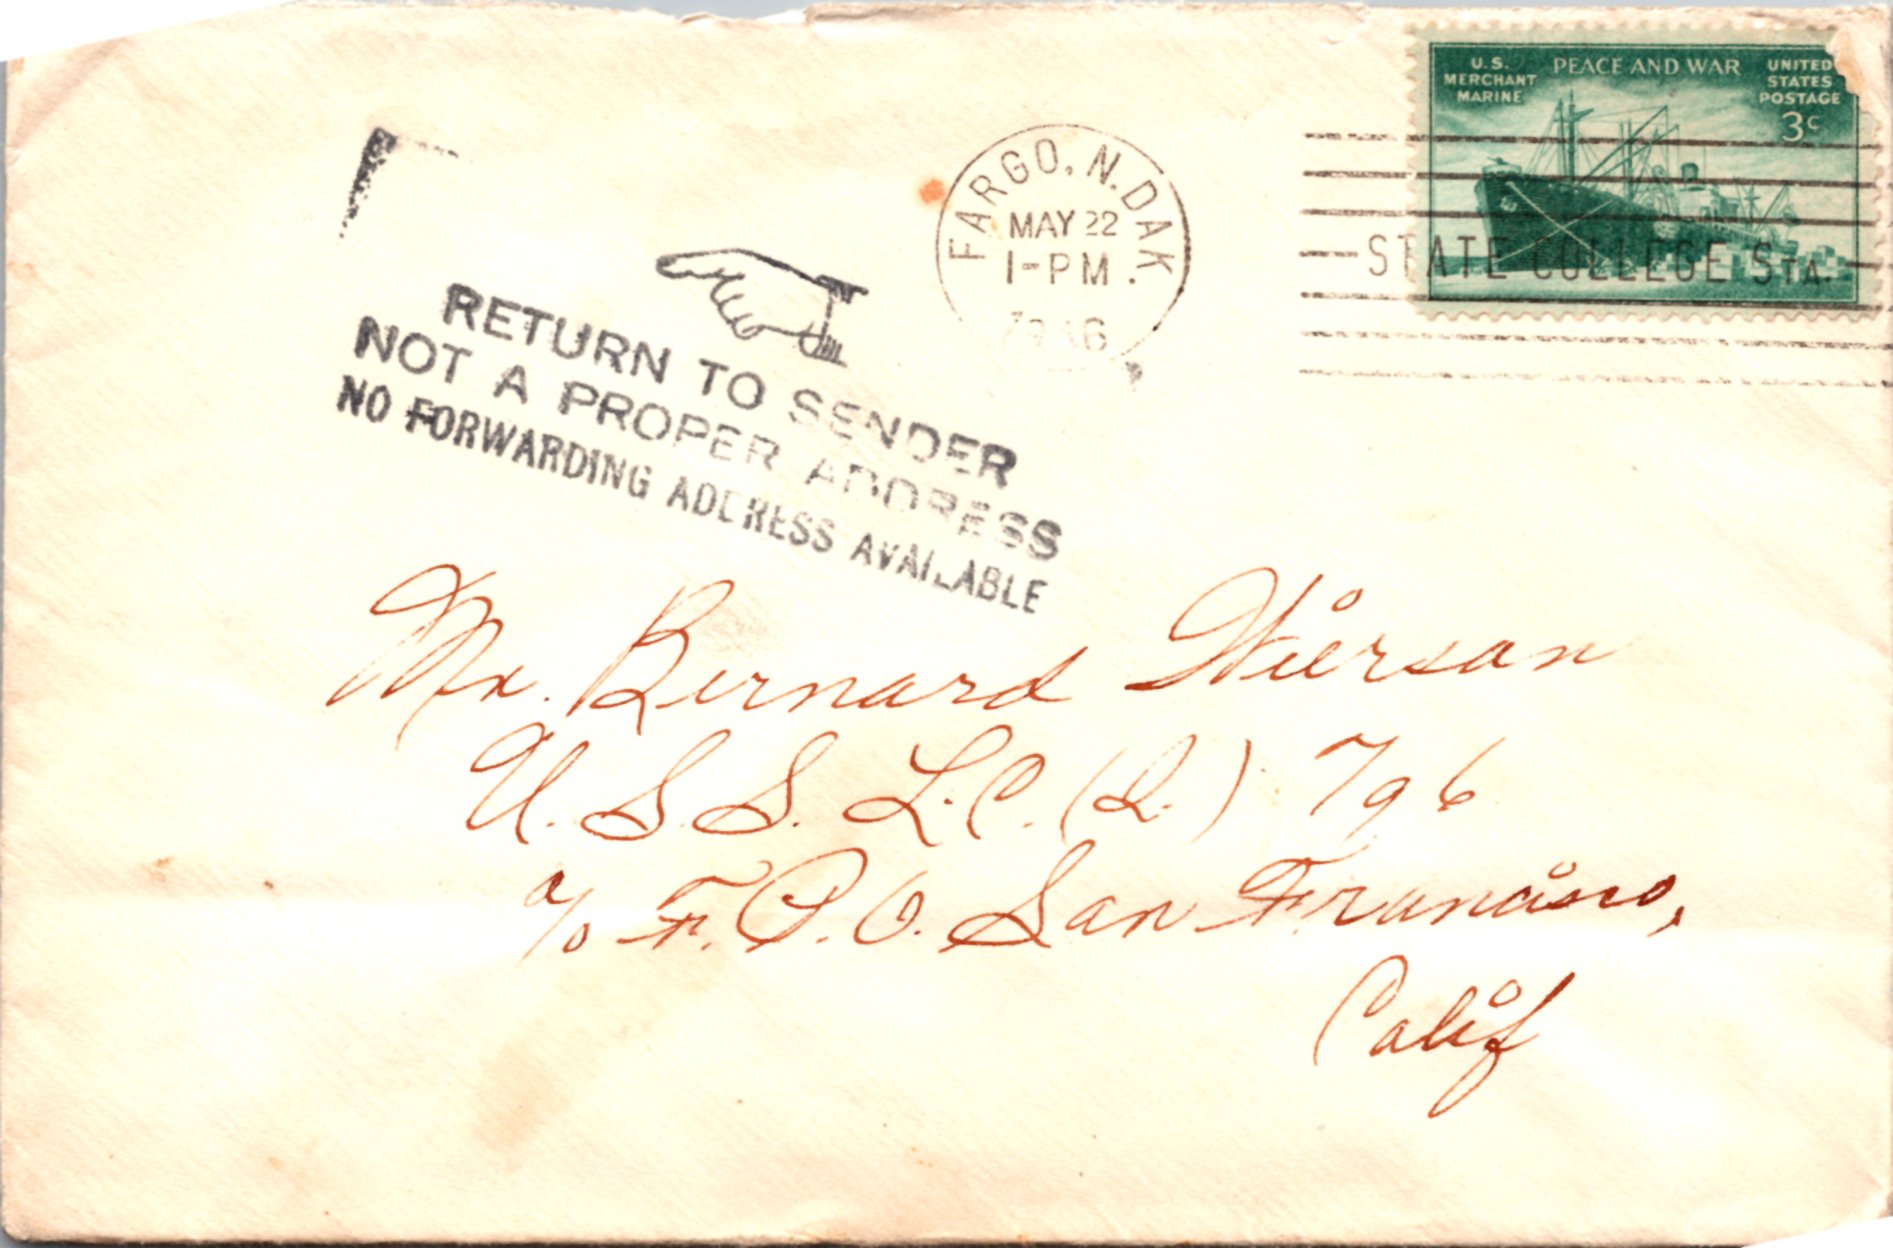 U.S. MERCHANT MARINE
PEACE AND WAR
UNITED STATES POSTAGE
3c
FARGO, N. DAK
MAY 22
1-PM.
1946
STATE COLLEGE STA.
RETURN TO SENDER
NOT A PROPER ADDRESS
NO FORWARDING ADDRESS AVAILABLE
Mr. Bernard Wierson
U.S.S. L.C.(I.) 796
c/o F.P.O. San Francisco,
Calif